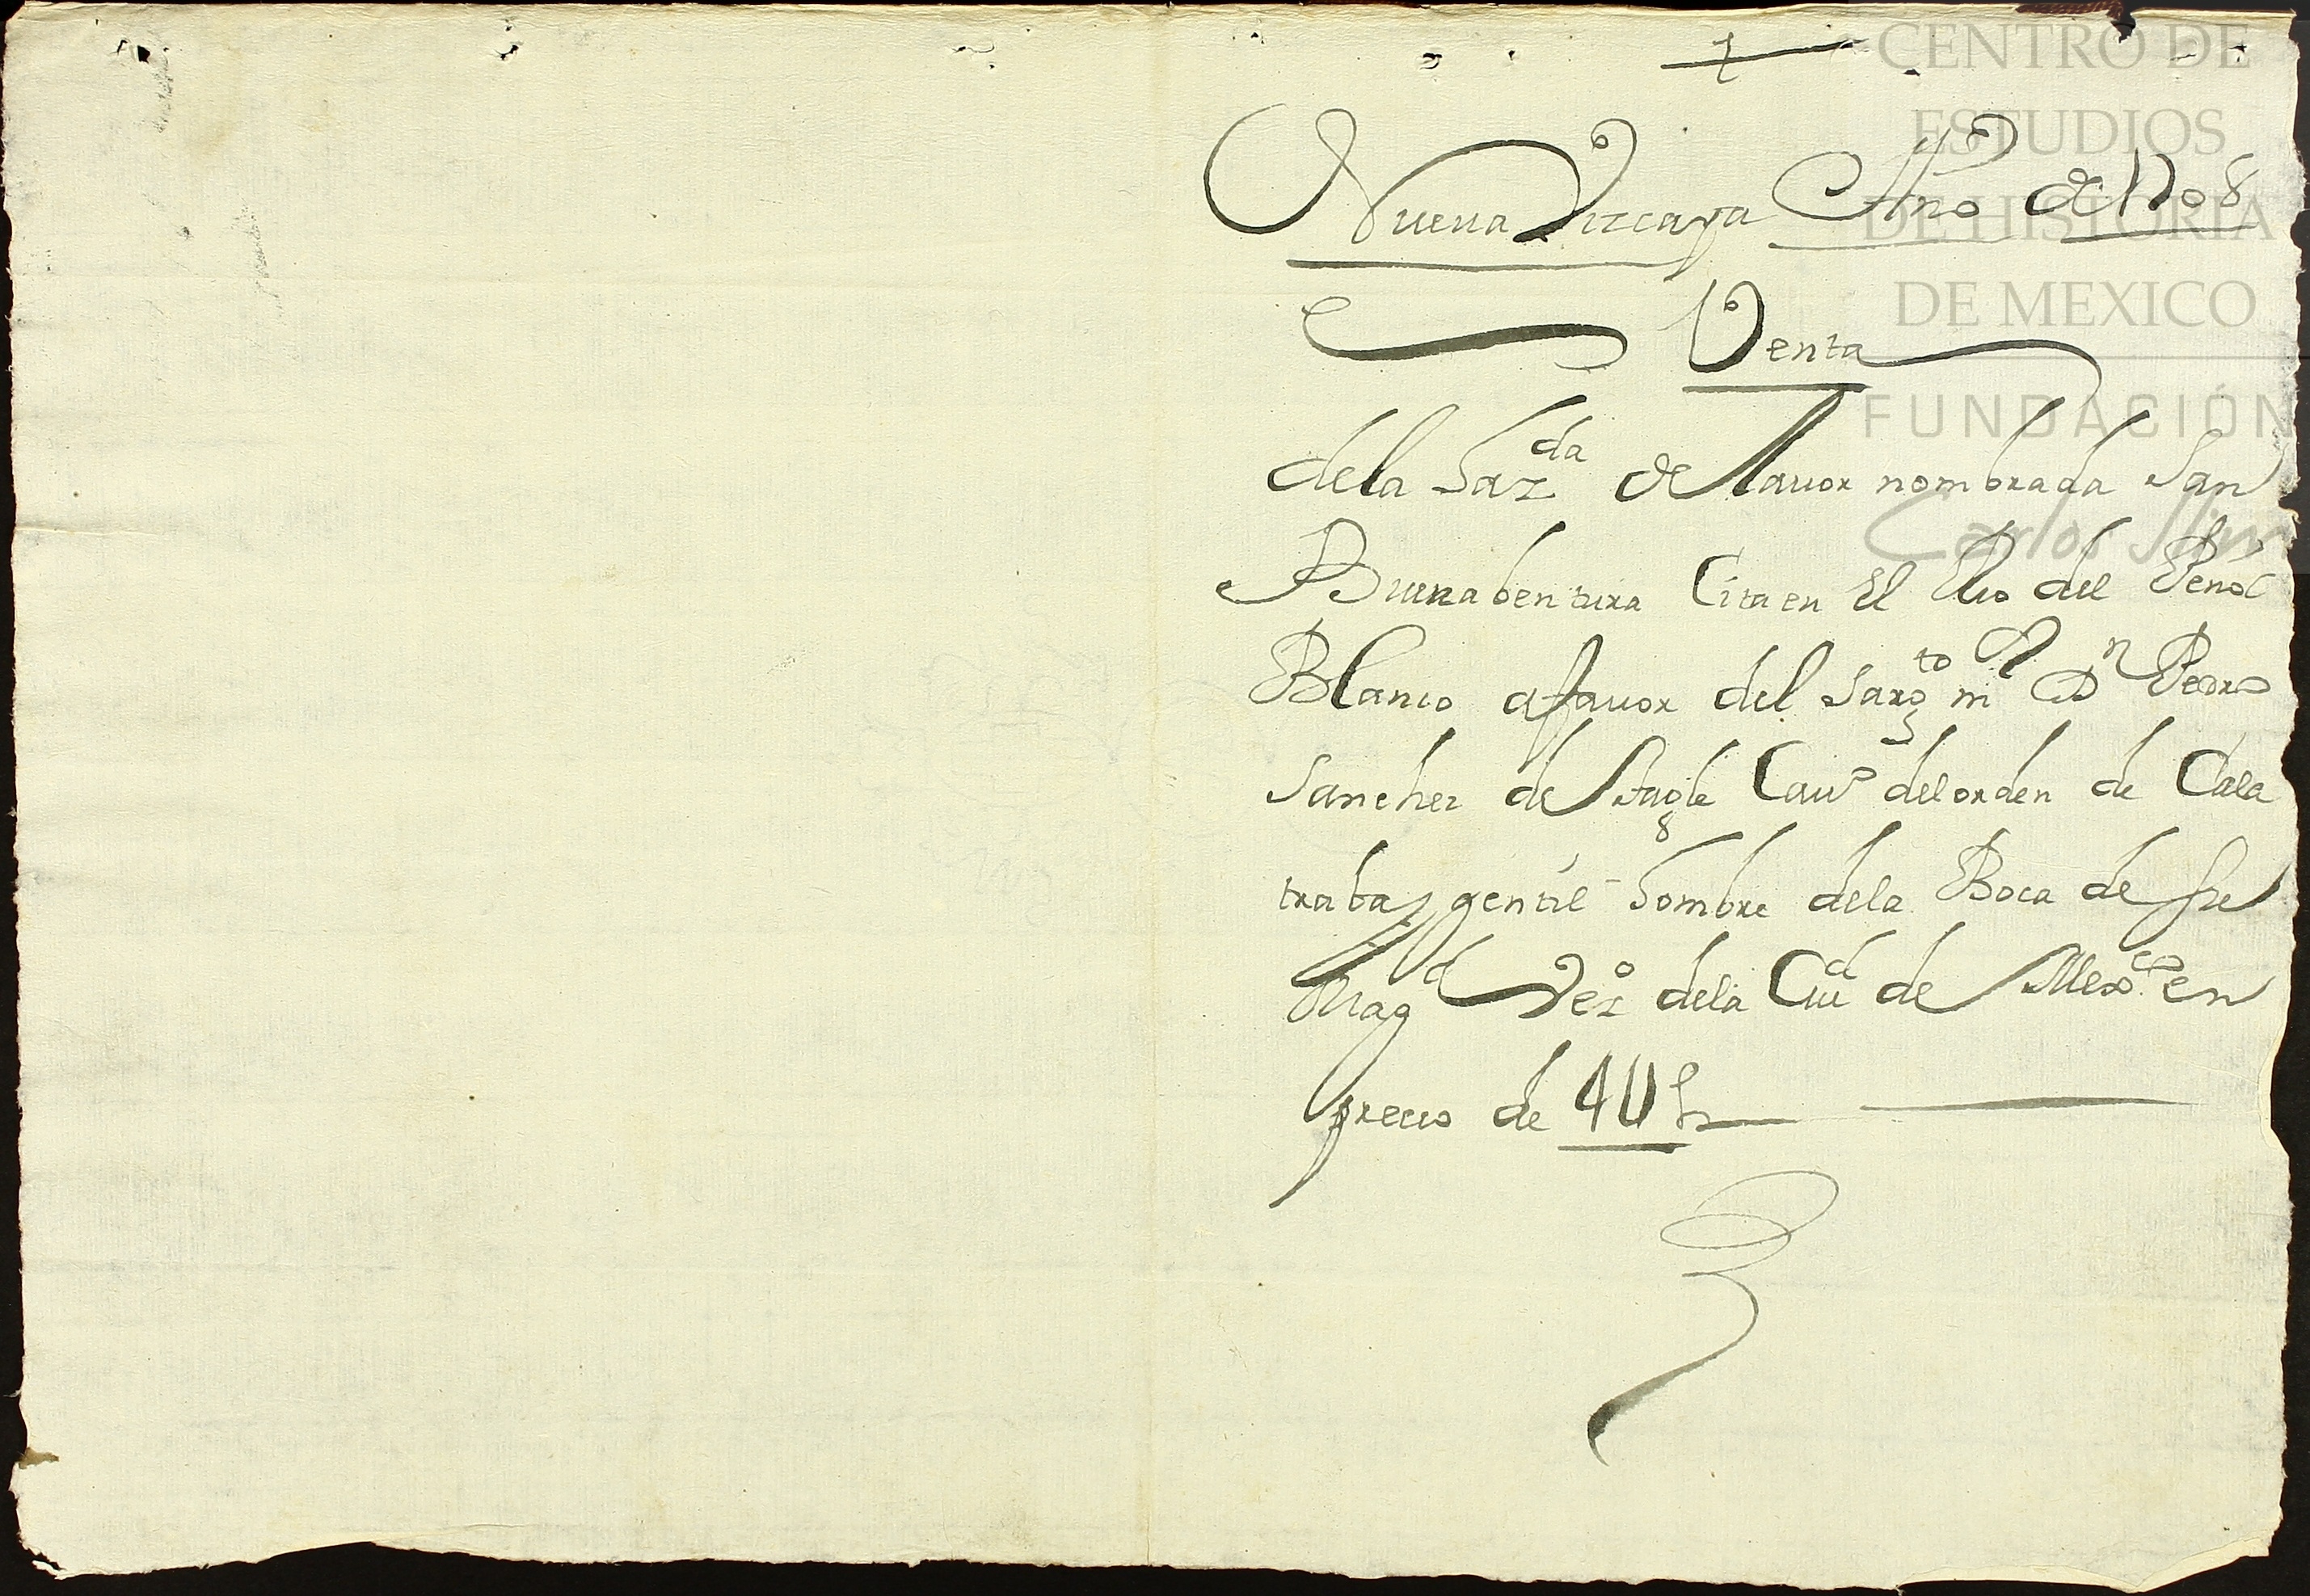 Nueua Vizcaya Año de 1708
Venta
dela Haz.da de lauor nombrada San
Buenabentura Cita en El Rio del Peñol
Blanco afauor del Sarg.to m.r D.n Pedro
Sanchez de Tagle Cau.o del orden de Cala
traba, gentil hombre dela Boca de su
Mag.d Vez.o dela Ciu.d de Mex.co en
precio de 4U ps
CENTRO DE
ESTUDIOS
DE HISTORIA
DE MEXICO
FUNDACIÓN
Carlos Slim